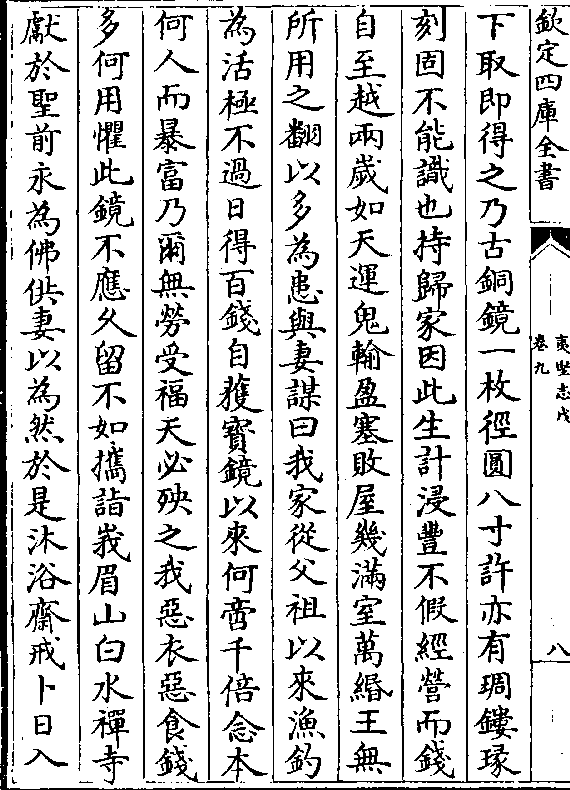 欽定四庫全書
夷堅志戊
卷九
八
下取即得之乃古銅鏡一枚徑圓八寸許亦有琱鏤瑑
刻固不能識也持歸家因此生計浸豐不假經營而錢
自至越兩歲如天運鬼輸盈塞敗屋幾滿室萬緡王無
所用之翻以多為患與妻謀曰我家從父祖以來漁釣
為活極不過日得百錢自獲寳鏡以來何啻千倍念本
何人而暴富乃爾無勞受福天必殃之我惡衣惡食錢
多何用懼此鏡不應久留不如攜詣峩眉山白水禪寺
獻於聖前永為佛供妻以為然於是沐浴齋戒卜日入